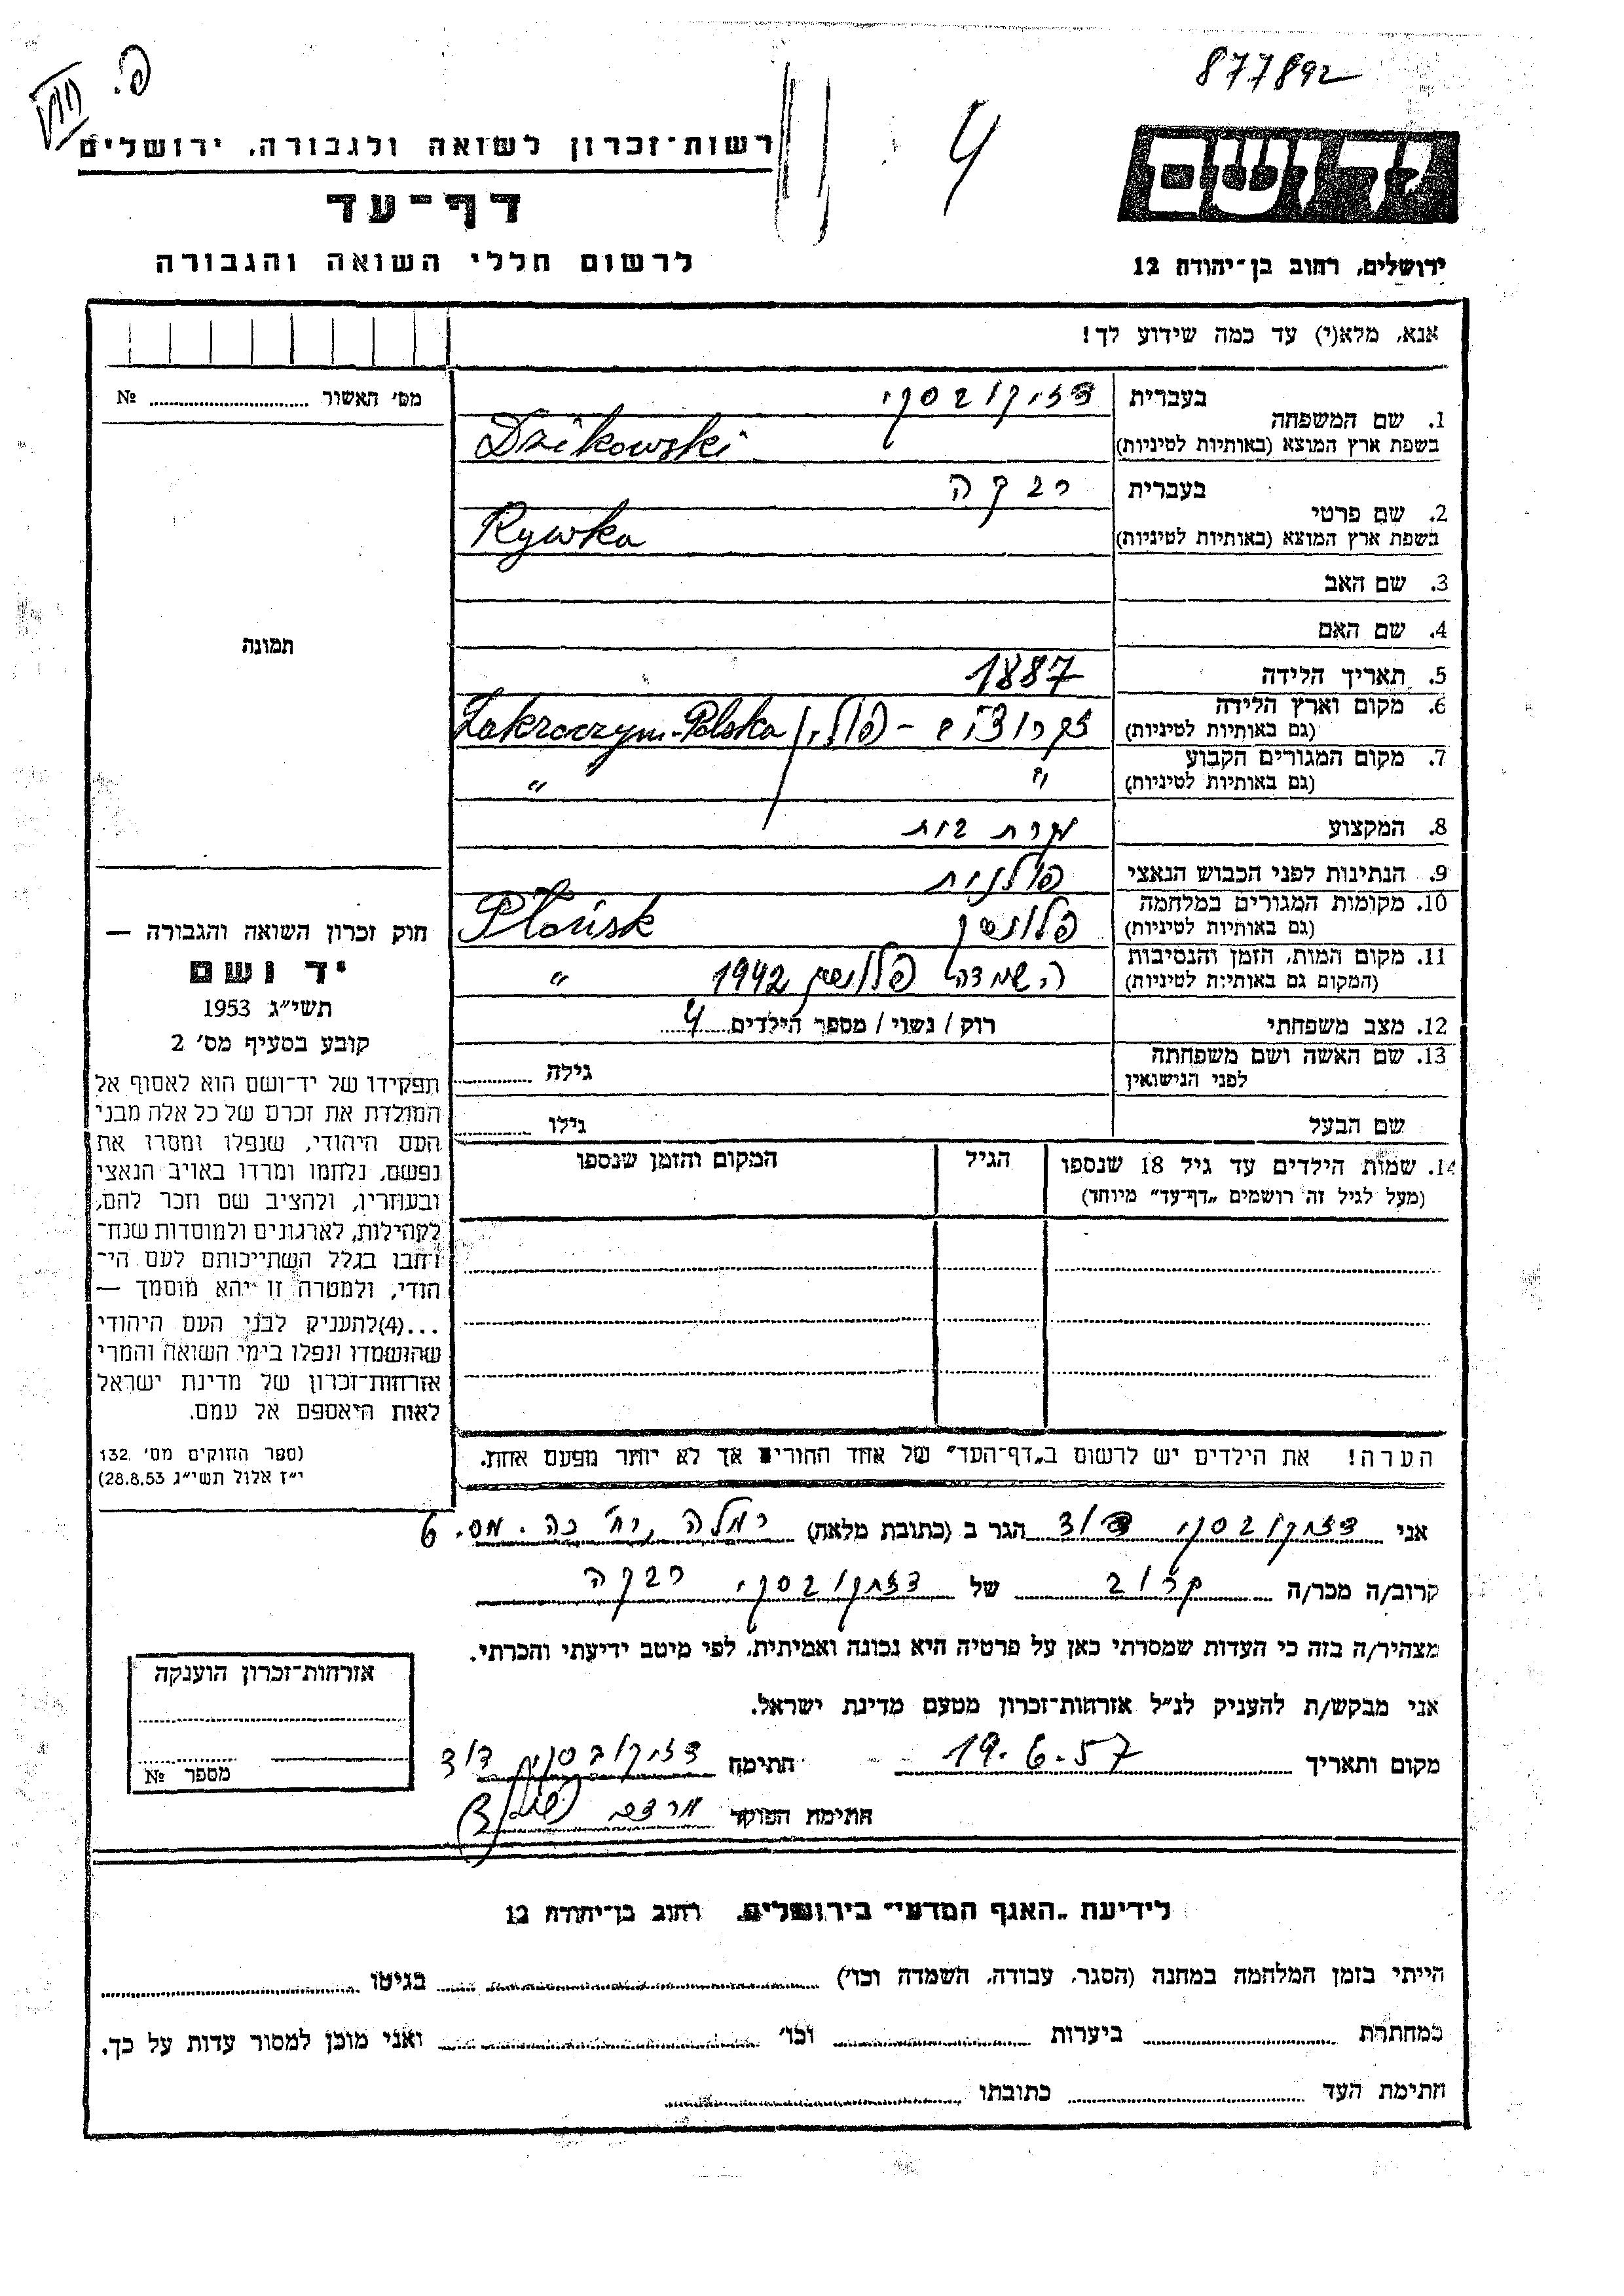 877892
פ. VIII
4
יד ושם
ירושלים, רחוב בן־יהודה 12
רשות־זכרון לשואה ולגבורה, ירושלים
דף־עד
לרשום חללי השואה והגבורה
אנא, מלא(י) עד כמה שידוע לך!
מס' האשור № ........
1. שם המשפחה
בעברית דזיקובסקי
בשפת ארץ המוצא (באותיות לטיניות) Dzikowski
2. שם פרטי
בעברית רבקה
בשפת ארץ המוצא (באותיות לטיניות) Rywka
3. שם האב
4. שם האם
5. תאריך הלידה 1887
6. מקום וארץ הלידה
(גם באותיות לטיניות) זקרוצים - פולין Zakroczym-Polska
7. מקום המגורים הקבוע
(גם באותיות לטיניות) " "
8. המקצוע עקרת בית
9. הנתינות לפני הכבוש הנאצי פולנית
10. מקומות המגורים במלחמה
(גם באותיות לטיניות) פלונסק Płońsk
11. מקום המות, הזמן והנסיבות
(המקום גם באותיות לטיניות) השמדה פלונסק 1942 "
12. מצב משפחתי רוק / נשוי / מספר הילדים 4
13. שם האשה ושם משפחתה
לפני הנישואין גילה ........
שם הבעל גילו ........
14. שמות הילדים עד גיל 18 שנספו
(מעל לגיל זה רושמים „דף־עד" מיוחד)
הגיל
המקום והזמן שנספו
הערה! את הילדים יש לרשום ב„דף־העד" של אחד ההורים אך לא יותר מפעם אחת.
תמונה
חוק זכרון השואה והגבורה —
יד ושם
תשי"ג 1953
קובע בסעיף מס' 2
תפקידו של יד־ושם הוא לאסוף אל
המולדת את זכרם של כל אלה מבני
העם היהודי, שנפלו ומסרו את
נפשם, נלחמו ומרדו באויב הנאצי
ובעוזריו, ולהציב שם וזכר להם,
לקהילות, לארגונים ולמוסדות שנח־
רבו בגלל השתייכותם לעם הי־
הודי, ולמטרה זו יהא מוסמך —
...(4)להעניק לבני העם היהודי
שהושמדו ונפלו בימי השואה והמרי
אזרחות־זכרון של מדינת ישראל
לאות היאספם אל עמם.
(ספר החוקים מס' 132
י"ז אלול תשי"ג 28.8.53)
אני דזיקובסקי דוד הגר ב (כתובת מלאה) רמלה, רח' כה. מס. 6
קרוב/ה מכר/ה קרוב של דזיקובסקי רבקה
מצהיר/ה בזה כי העדות שמסרתי כאן על פרטיה היא נכונה ואמיתית, לפי מיטב ידיעתי והכרתי.
אני מבקש/ת להעניק לנ"ל אזרחות־זכרון מטעם מדינת ישראל.
מקום ותאריך 19.6.57 חתימה דזיקובסקי דוד
חתימת הפוקד
אזרחות־זכרון הוענקה
מספר №
לידיעת „האגף המדעי" בירושלים, רחוב בן־יהודה 12
הייתי בזמן המלחמה במחנה (הסגר, עבודה, השמדה וכו') ........ בגיטו ........
במחתרת ........ ביערות ........ וכו' ........ ואני מוכן למסור עדות על כך.
חתימת העד ........ כתובתו ........